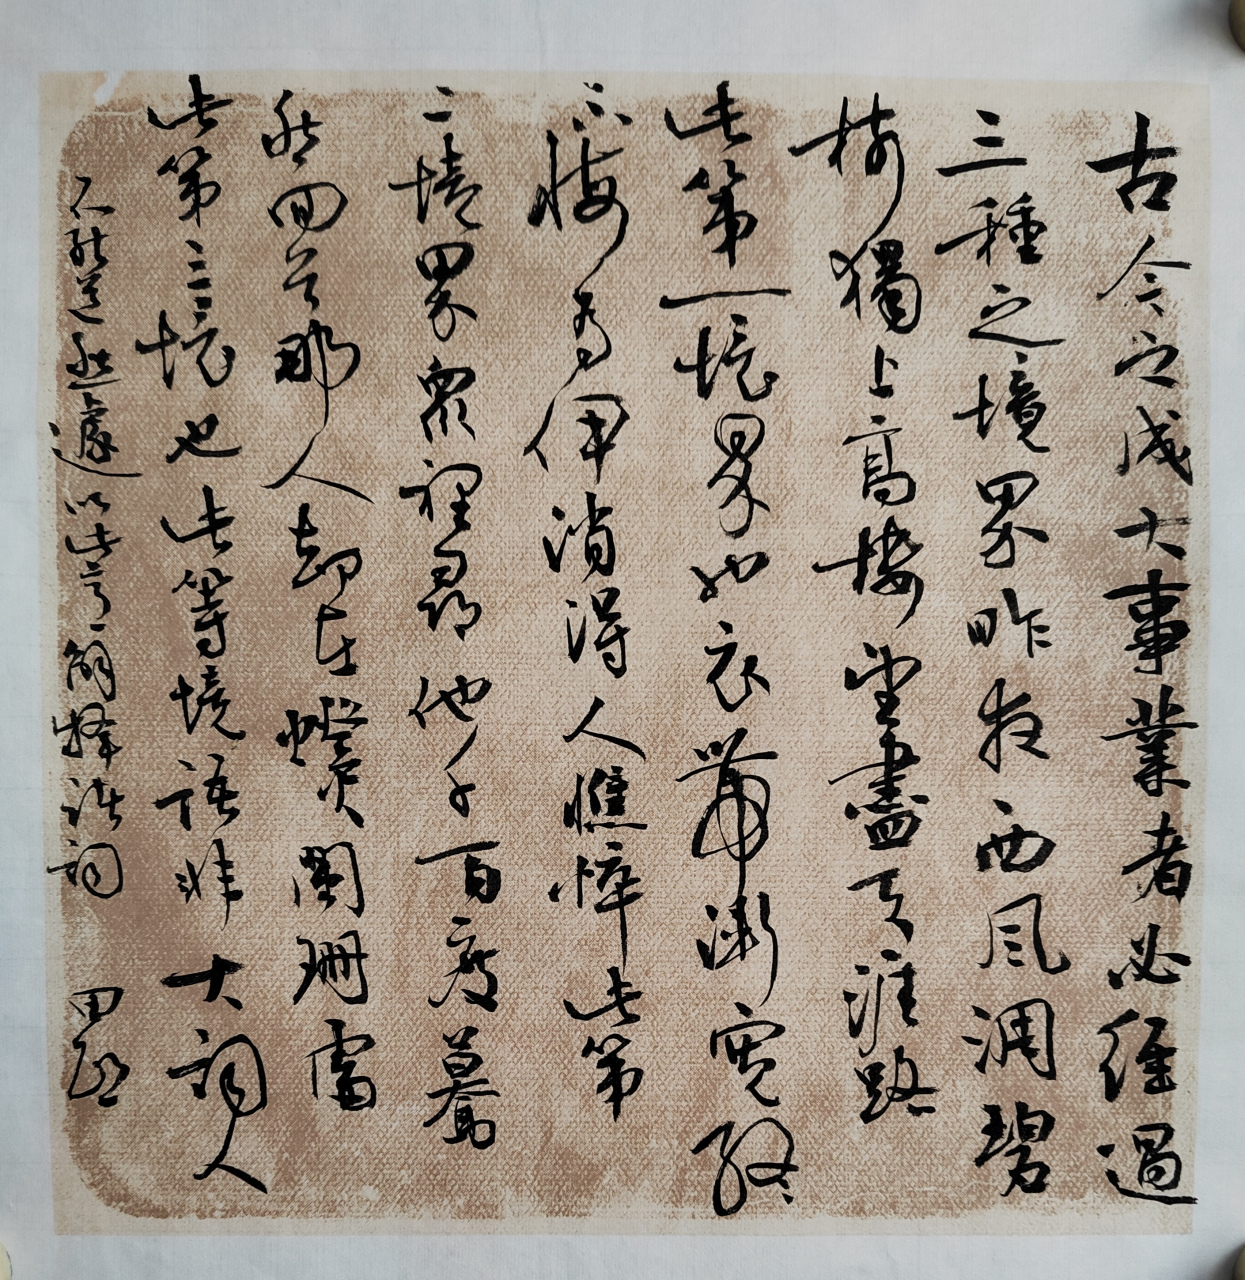 古今之成大事業者必經過
三種之境界昨夜西風凋碧
樹獨上高樓望盡天涯路
此第一境界也衣帶漸寬終
不悔為伊消得人憔悴此第
二境界眾裡尋他千百度驀
然回首那人却在燈火闌珊處
此第三境也此等境語非大詞人
不能道然遽以此意解釋諸詞 田